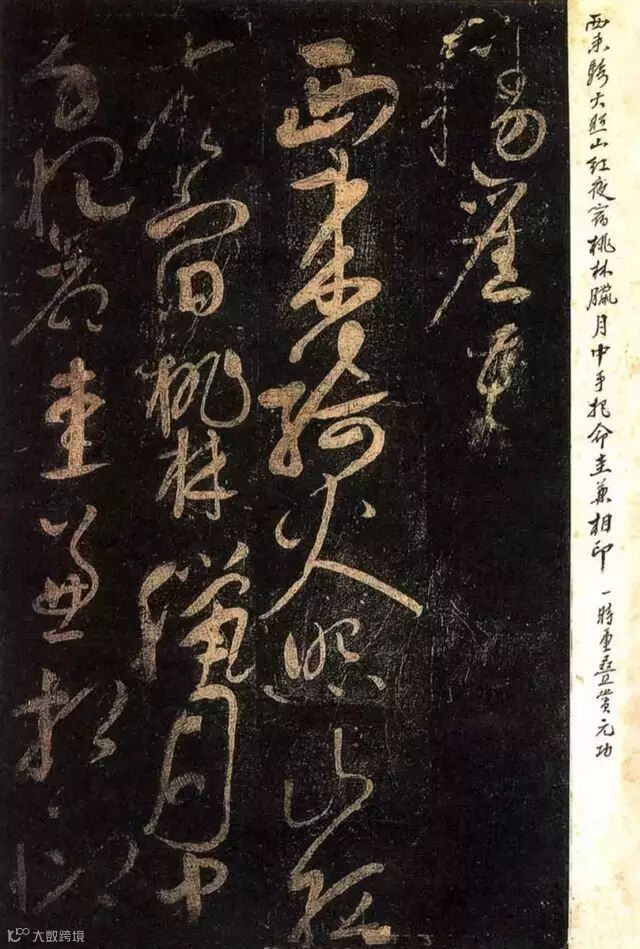 西来騎火照山红夜宿桃林臘月中手把命圭兼相印 一時重叠賞元功
西来騎火照山红
夜宿桃林臘月中
手把命圭兼相印
大数跨境